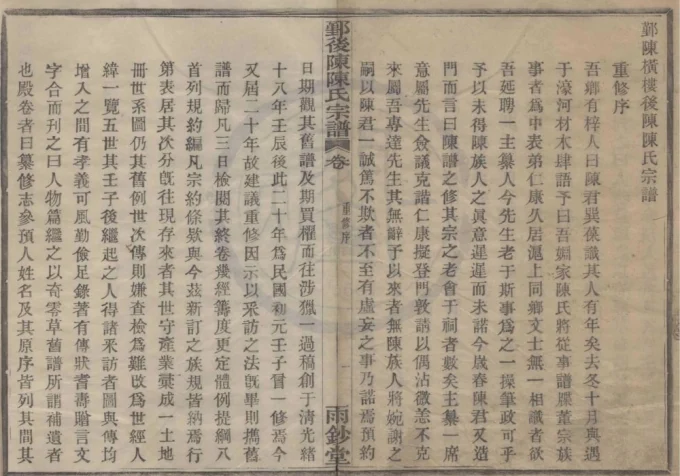 鄞陳橫樓後陳陳氏宗譜
重修序
吾鄉有梓人曰陳君巽葆識其人有年矣去冬十月與遇
于濠河材木肆語予曰吾姻家陳氏將從事譜牒董宗族
事者爲中表弟仁康久居滬上同鄉文士無一相識者欲
吾延聘一主纂人今先生老于斯事爲之一操筆政可乎
予以未得陳族人之眞意遲遲而未諾今歲春陳君又造
門而言曰陳譜之修其宗之老會于祠者數矣主纂一席
意屬先生僉議克諧仁康擬登門敦請以偶沾微恙不克
來屬吾專達先生其無辭予以來者無陳族人將婉謝之
嗣以陳君一誠篤不欺者不至有虛妄之事乃諾焉預約
鄞後陳陳氏宗譜
卷
重修序
雨鈔堂
日期觀其舊譜及期買櫂而往涉獵一過稿創于清光緒
十八年壬辰後此二十年爲民國初元壬子冒一修焉今
又屆二十年故建議重修因示以采訪之法旣畢則攜舊
譜而歸凡三日檢閱其終卷幾經籌度更定體例提綱八
首列規約編凡宗約條歟與今茲新訂之族規皆納焉行
第表居其次分旣往現存來者其世守產業彙成一土地
冊世系圖仍其舊例世次傳則嫌查檢爲難改爲世經人
緯一覽五世其壬子後繼起之人得諸釆訪者圖與傳均
增入之間有孝義可風勤儉足錄著有傳狀耆壽贈言文
字合而刊之曰人物篇繼之以奇零草舊譜所謂補遺者
也殿卷者曰纂修志參預人姓名及其原序皆列其間其